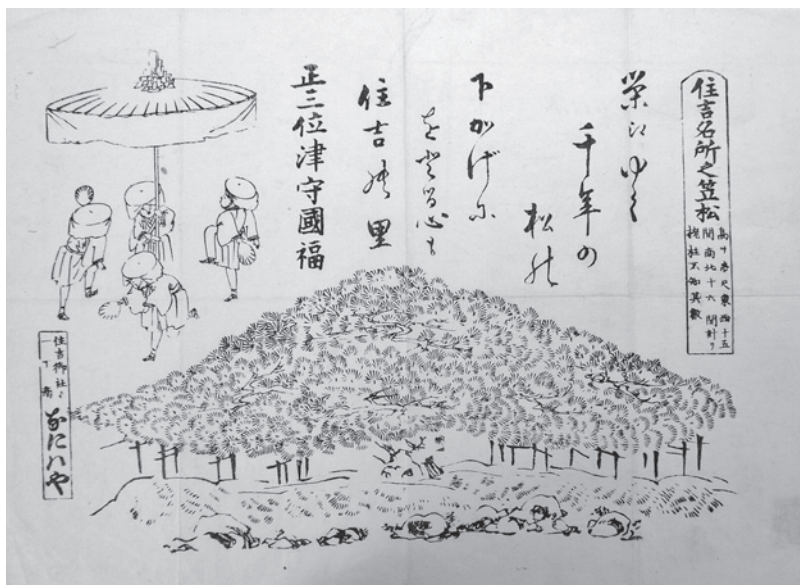 住吉名所之笠松
高サ 尺東西十五
間南北十六間計り
柱不知其數
栄江ゆく
千年の
松能
下かげに
を登る心も
住吉能里
正三位津守國福
住吉御社ゟ
一丁南
なにハや